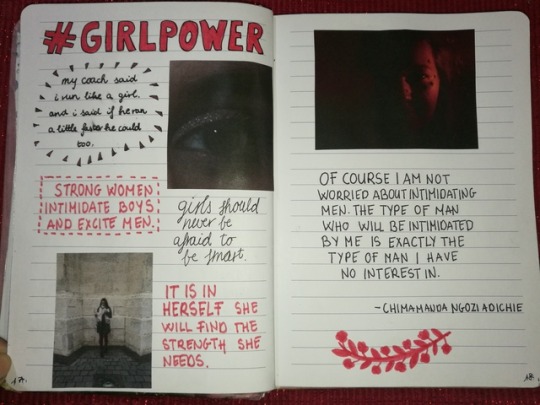 #GIRLPOWER
my coach said
i run like a girl.
and i said if he ran
a little faster he could
too.
STRONG WOMEN
INTIMIDATE BOYS
AND EXCITE MEN.
girls should
never be
afraid to
be smart.
IT IS IN
HERSELF SHE
WILL FIND THE
STRENGTH SHE
NEEDS.
17.
OF COURSE I AM NOT
WORRIED ABOUT INTIMIDATING
MEN. THE TYPE OF MAN
WHO WILL BE INTIMIDATED
BY ME IS EXACTLY THE
TYPE OF MAN I HAVE
NO INTEREST IN.
-CHIMAMANDA NGOZI ADICHIE
18.